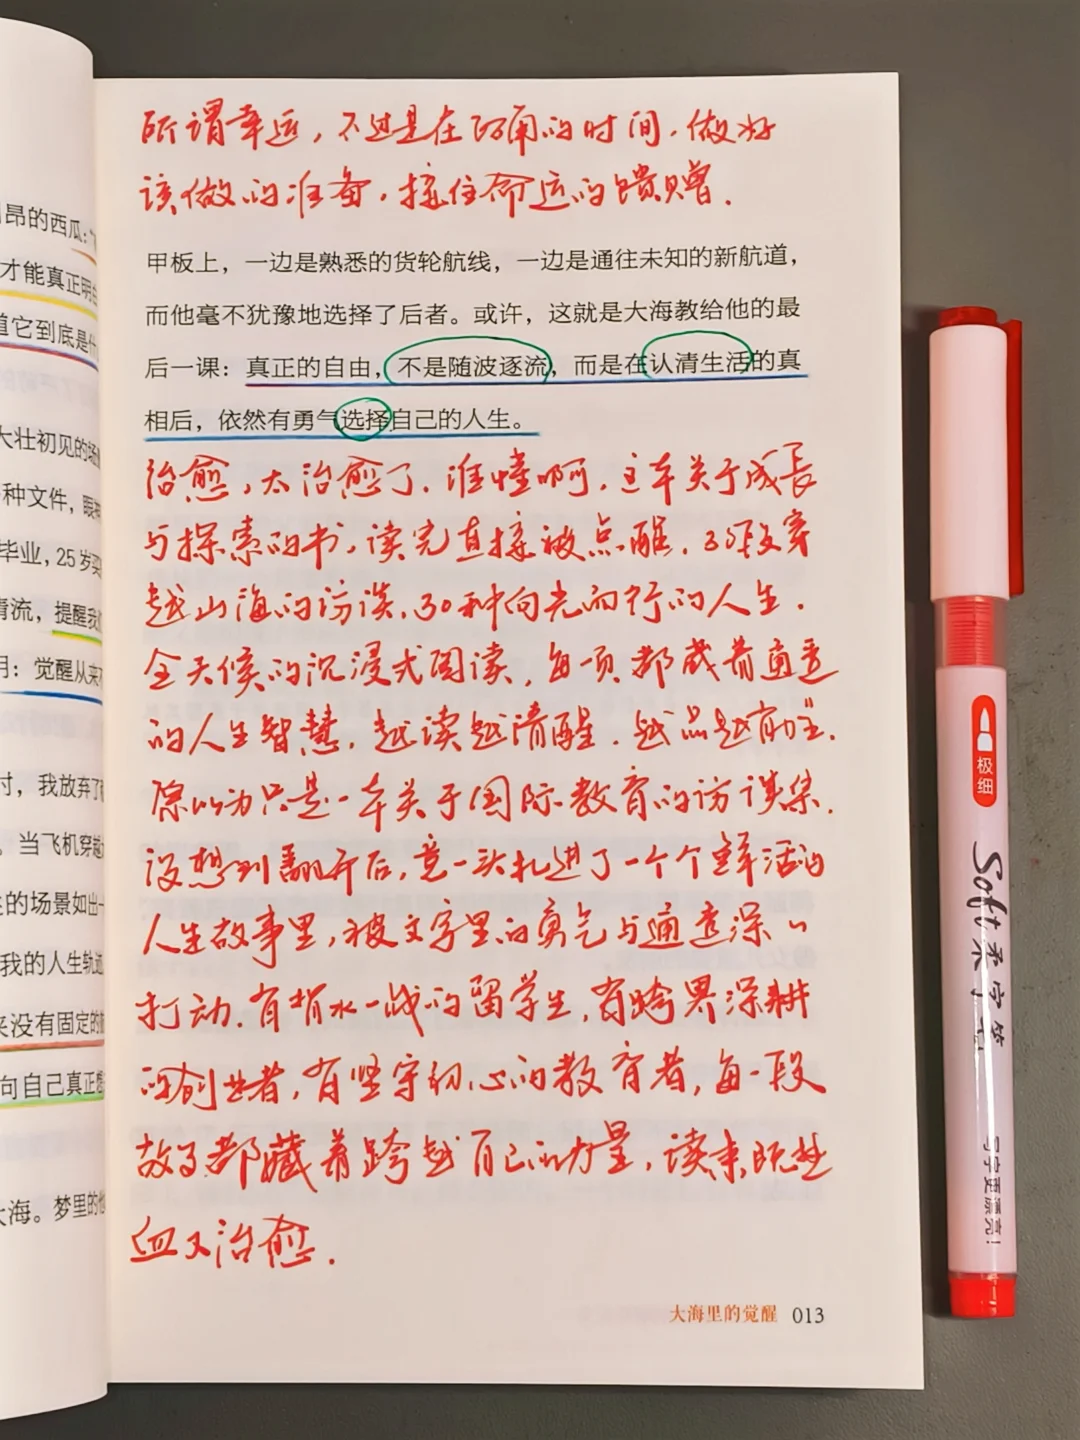 昂的西瓜：“
才能真正明白
道它到底是什
大壮初见的场
种文件，眼神
毕业，25岁买
清流，提醒我
月：觉醒从来不
时，我放弃了
。当飞机穿越
的场景如出一
我的人生轨迹
来没有固定的
向自己真正想
大海。梦里的他
所谓幸运，不过是在的时间，做好
该做的准备，接住命运的馈赠．
甲板上，一边是熟悉的货轮航线，一边是通往未知的新航道，
而他毫不犹豫地选择了后者。或许，这就是大海教给他的最
后一课：真正的自由，不是随波逐流，而是在认清生活的真
相后，依然有勇气选择自己的人生。
治愈，太治愈了．谁懂啊，这本关于成长
与探索的书，读完直接被点醒．30段穿
越山海的访谈，30种向光而行的人生．
全天候的沉浸式阅读，每一页都藏着通透
的人生智慧，越读越清醒．越品越前．
原以为只是一本关于国际教育的访谈集．
没想到翻开后，竟一头扎进了一个个鲜活的
人生故事里，被文字里的勇气与通透深深
打动．有背水一战的留学生，有跨界深耕
的创业者，有坚守初心的教育者，每一段
故事都藏着跨越自己的力量，读来既热
血又治愈．
大海里的觉醒 013
极细
Soft柔字笔
写字更漂亮！